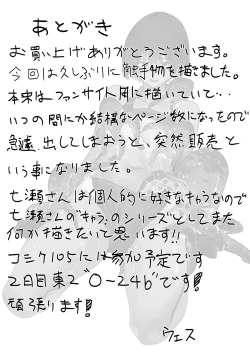 あとがき
お買い上げありがとうございます。
今回は久しぶりに触手物を描きました。
本来はファンサイト用に描いていて・・
いつの間にか結構なページ数になったので
急遽、出してしまおうと、突然販売と
いう事になりました。
七瀬さんは個人的に好きなキャラなので
七瀬さんの"キャラ"のシリーズとしてまた
何か描きたいて思います!!
コミケ105には参加予定です
2日目東2"O-24b"です!
頑張ります!
ウェス